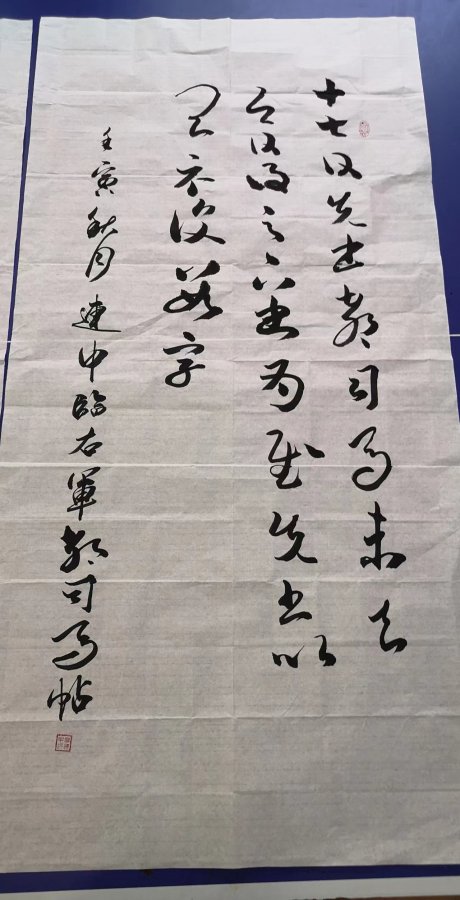 十七日先書郗司馬未去
即日得足下書為慰先書以
具示復數字
壬寅秋月建中臨右軍郗司馬帖